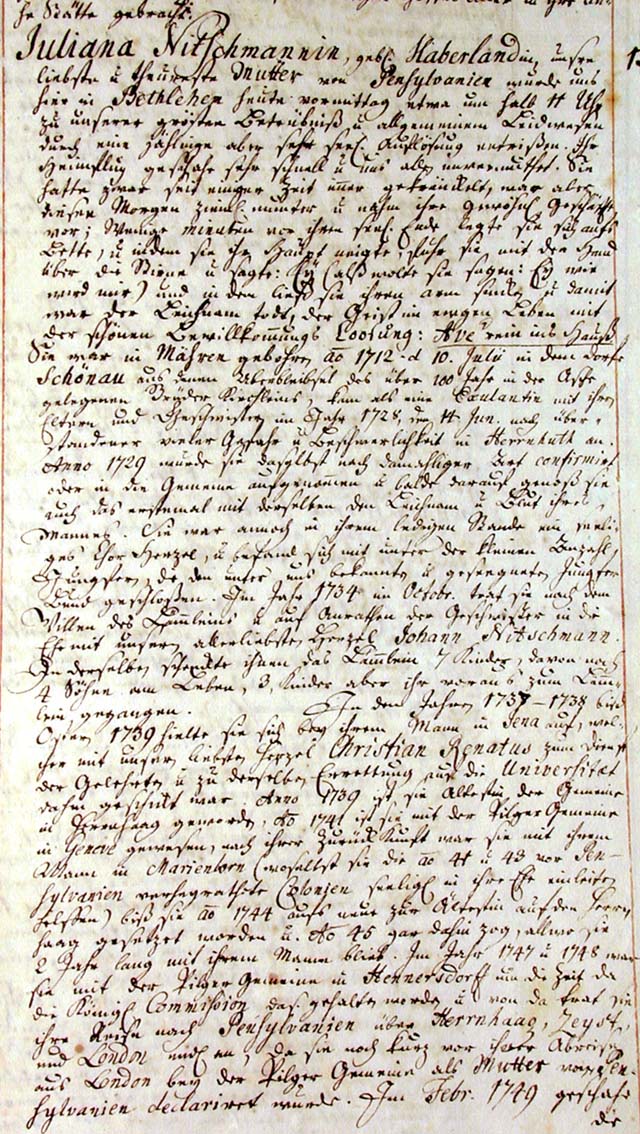 he Stätte gebracht.
Juliana Nitschmannin, geb. Haberlandin, unsre
liebste u theureste Mutter von Pensylvanien wurde uns
hier in Bethlehem heute vormittag etwa um halb 11 Uhr
zu unserer grösten Betrübniß u allgemeinem Leidwesen
durch eine jählinge aber sehr seel. Auflösung entrißen. Ihr
Heimflug geschahe sehr schnell u uns allen unvermuthet. Sie
hatte zwar seit einiger Zeit immer gekränckelt, war aber
diesen Morgen ziemlich munter u nahm ihre gewöhnl. Geschäfte
vor; Wenige Minuten vor ihrem seel. Ende legte sie sich aufs
Bette, u indem sie ihr Haupt neigte, fuhr sie mit der Hand
über die Stirne u sagte: Ey (als wolte sie sagen: Ey wie
wird mir) und in dem ließ sie ihren arm sincken, u damit
war der Leichnam todt, der Geist im ewigen Leben mit
der schönen Bewillkommungs Loosung: Ave rein ins Hauß.
Sie war in Mähren gebohren ao 1712 d 10. Julii in dem Dorfe
Schönau aus denen Überbleibsel des über 100 Jahr in der Asche
gelegenen Brüder Kirchleins, kam als eine Exulantin mit ihren
Eltern und Geschwistern im Jahr 1728, den 11 Jun. nach über-
standener vieler Gefahr u Beschwerlichkeit in Herrnhuth an.
Anno 1729 wurde sie daselbst nach damahliger Art confirmirt
oder in die Gemeine aufgenommen u balde darauf genoß sie
auch das erstemal mit derselben den Leichnam u Blut ihres
Mannes. Sie war annoch in ihrem ledigen Stande ein seeli-
ges Chor Herzel, u befand sich mit unter der kleinen Anzahl
Jungfern, die den unter uns bekannten u gesegneten Jungfer
Bund geschloßen. Im Jahr 1734 im Octobr. trat sie nach dem
Willen des Lämmleins u auf Anrathen der Geschwister in die
Ehe mit unserm allerliebsten Herzel Johann Nitschmann.
In derselben schenckte ihnen das Lämmlein 7 Kinder, davon noch
4 Söhne am Leben, 3 Kinder aber ihr voraus zum Lämm-
lein gegangen. In den Jahren 1737-1738 biß
Ostern 1739 hielte sie sich bey ihrem Mann in Jena auf, wel-
cher mit unserm liebsten Herzel Christian Renatus zum Dienst
der Gelehrten u zu derselben Errettung auf die Universitæt
dahin geschickt war. Anno 1739 ist sie Ältestin der Gemeine
in Herrnhaag geworden, Ao 1741 ist sie mit der Pilger Gemeine
in Geneve gewesen, nach ihrer Zurückkunft war sie mit ihrem
Mann in Marienborn (woselbst sie die ao 41 u 43 vor Pen-
sylvanien verheyrathete Colonien seelig in ihre Ehe einleiten
helffen) biß sie ao 1744 aufs neue zur Ältestin auf den Herrn-
haag gesetzet worden u. Ao 45 gar dahin zog, allwo sie
2 Jahr lang mit ihrem Manne blieb. Im Jahr 1747 u 1748 war
sie mit der Pilger Gemeine in Hennersdorff um die Zeit da
die Königl. Commission das. gehalten worden u von da trat sie
ihre Reise nach Pensylvanien über Herrnhaag, Zeyst,
und London mit an, da sie noch kurz vor ihrer Abreise
aus London bey der Pilger Gemeine als Mutter von Pen-
sylvanien declariret wurde. Im Febr. 1749 geschahe
die